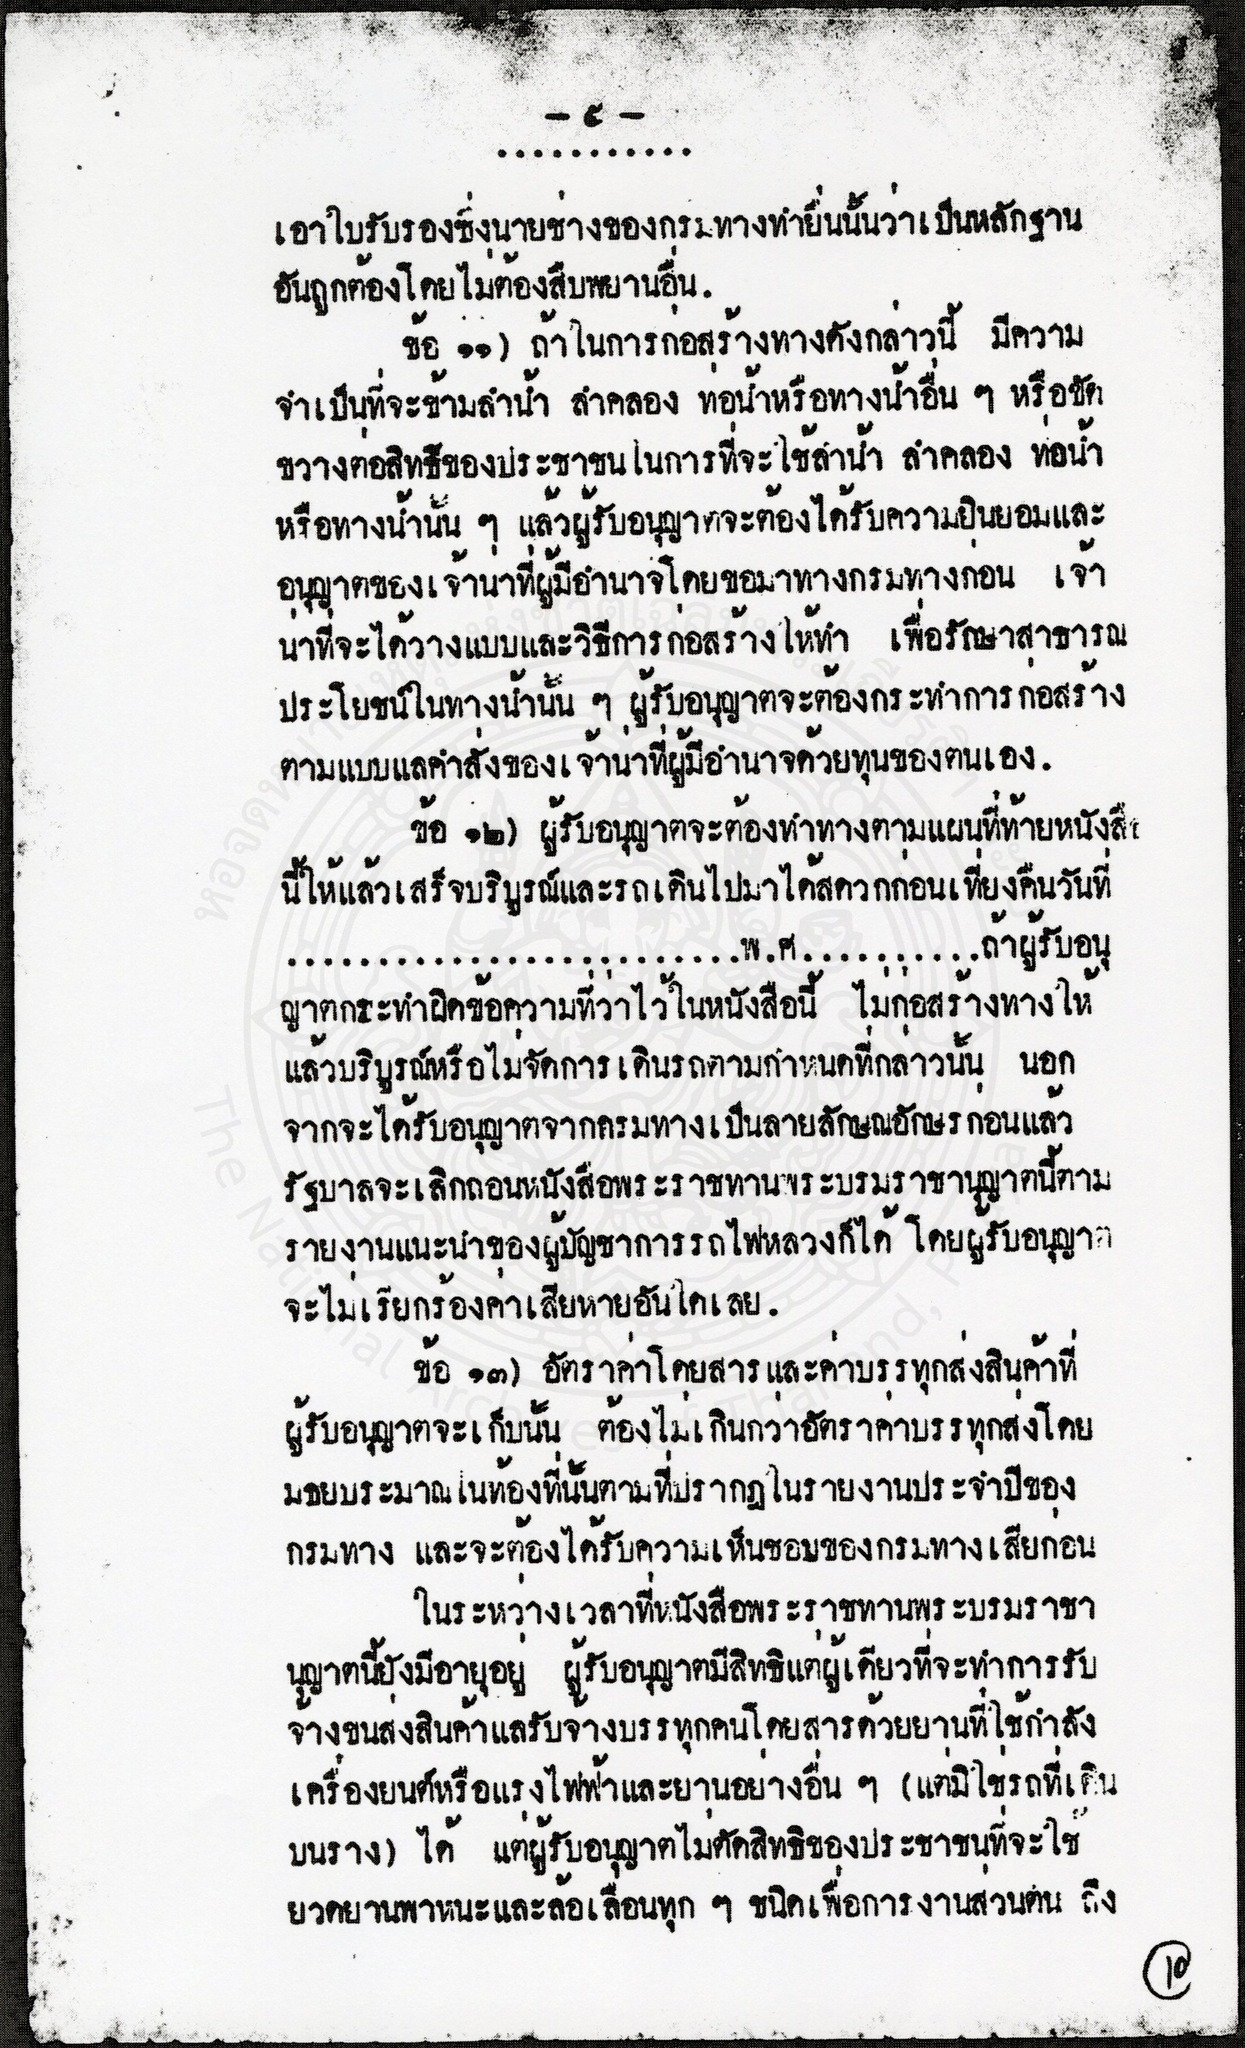 - ๕ -
...........
เอาใบรับรองซึ่งนายช่างของกรมทางทำยื่นนั้นว่าเป็นหลักฐาน
อันถูกต้องโดยไม่ต้องสืบพยานอื่น.
ข้อ ๑๑) ถ้าในการก่อสร้างทางดังกล่าวนี้ มีความ
จำเป็นที่จะข้ามลำน้ำ ลำคลอง ท่อน้ำหรือทางน้ำอื่น ๆ หรือขัด
ขวางต่อสิทธิ์ของประชาชนในการที่จะใช้ลำน้ำ ลำคลอง ท่อน้ำ
หรือทางน้ำนั้น ๆ แล้วผู้รับอนุญาตจะต้องได้รับความยินยอมและ
อนุญาตของเจ้าน่าที่ผู้มีอำนาจโดยขอมาทางกรมทางก่อน เจ้า
น่าที่จะได้วางแบบและวิธีการก่อสร้างให้ทำ เพื่อรักษาสาธารณ
ประโยชน์ในทางน้ำนั้น ๆ ผู้รับอนุญาตจะต้องกระทำการก่อสร้าง
ตามแบบแลคำสั่งของเจ้าน่าที่ผู้มีอำนาจด้วยทุนของตนเอง.
ข้อ ๑๒) ผู้รับอนุญาตจะต้องทำทางตามแผนที่ท้ายหนังสือ
นี้ให้แล้วเสร็จบริบูรณ์และรถเดินไปมาได้สดวกก่อนเที่ยงคืนวันที่
..........................พ.ศ...........ถ้าผู้รับอนุ
ญาตกระทำผิดข้อความที่ว่าไว้ในหนังสือนี้ ไม่ก่อสร้างทางให้
แล้วบริบูรณ์หรือไม่จัดการเดินรถตามกำหนดที่กล่าวนั้น นอก
จากจะได้รับอนุญาตจากกรมทางเป็นลายลักษณอักษรก่อนแล้ว
รัฐบาลจะเลิกถอนหนังสือพระราชทานพระบรมราชานุญาตนี้ตาม
รายงานแนะนำของผู้บัญชาการรถไฟหลวงก็ได้ โดยผู้รับอนุญาต
จะไม่เรียกร้องค่าเสียหายอันใดเลย.
ข้อ ๑๓) อัตราค่าโดยสารและค่าบรรทุกส่งสินค้าที่
ผู้รับอนุญาตจะเก็บนั้น ต้องไม่เกินกว่าอัตราค่าบรรทุกส่งโดย
มธยประมาณในท้องที่นั้นตามที่ปรากฏในรายงานประจำปีของ
กรมทาง และจะต้องได้รับความเห็นชอบของกรมทางเสียก่อน
ในระหว่างเวลาที่หนังสือพระราชทานพระบรมราชา
นุญาตนี้ยังมีอายุอยู่ ผู้รับอนุญาตมีสิทธิแต่ผู้เดียวที่จะทำการรับ
จ้างขนส่งสินค้าแลรับจ้างบรรทุกคนโดยสารด้วยยานที่ใช้กำลัง
เครื่องยนต์หรือแรงไฟฟ้าและยานอย่างอื่น ๆ (แต่มิใช่รถที่เดิน
บนราง) ได้ แต่ผู้รับอนุญาตไม่ตัดสิทธิของประชาชนที่จะใช้
ยวดยานพาหนะและล้อเลื่อนทุก ๆ ชนิดเพื่อการงานส่วนตน ถึง
๑๐